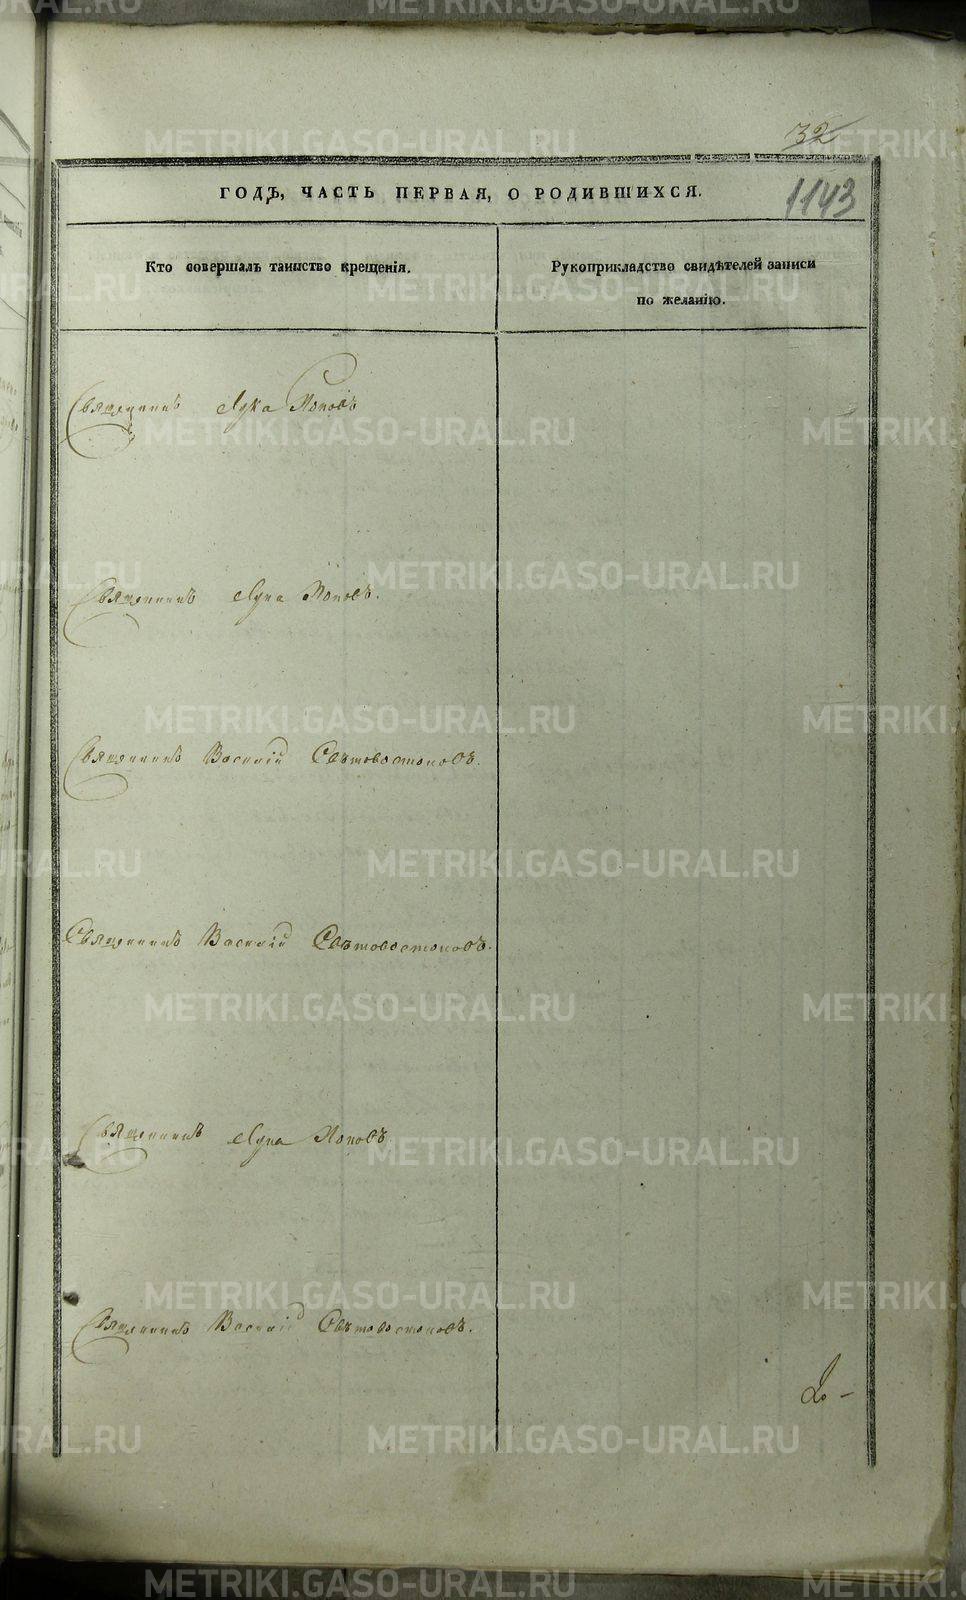 32
1143
ГОДЪ, ЧАСТЬ ПЕРВАЯ, О РОДИВШИХСЯ.
Кто совершалъ таинство крещенія.
Рукоприкладство свидѣтелей записи
по желанію.
Священникъ Лука Поповъ
Священникъ Лука Поповъ.
Священникъ Василій Свѣтовостоковъ.
Священникъ Василій Свѣтовостоковъ.
Священникъ Лука Поповъ
Священникъ Василій Свѣтовостоковъ.
METRIKI.GASO-URAL.RU